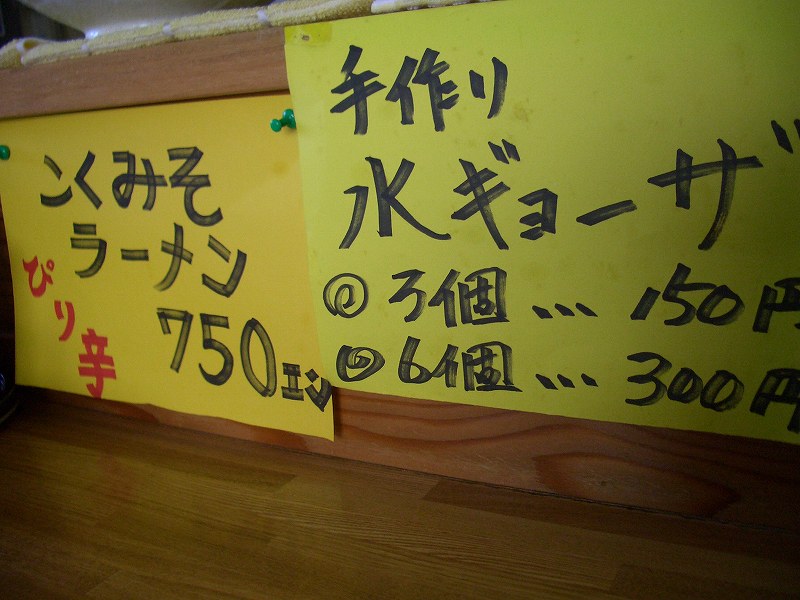 こくみそ
ラーメン
ぴり辛
750エン
手作り
水ギョーザ
◎3個…150円
◎6個…300円